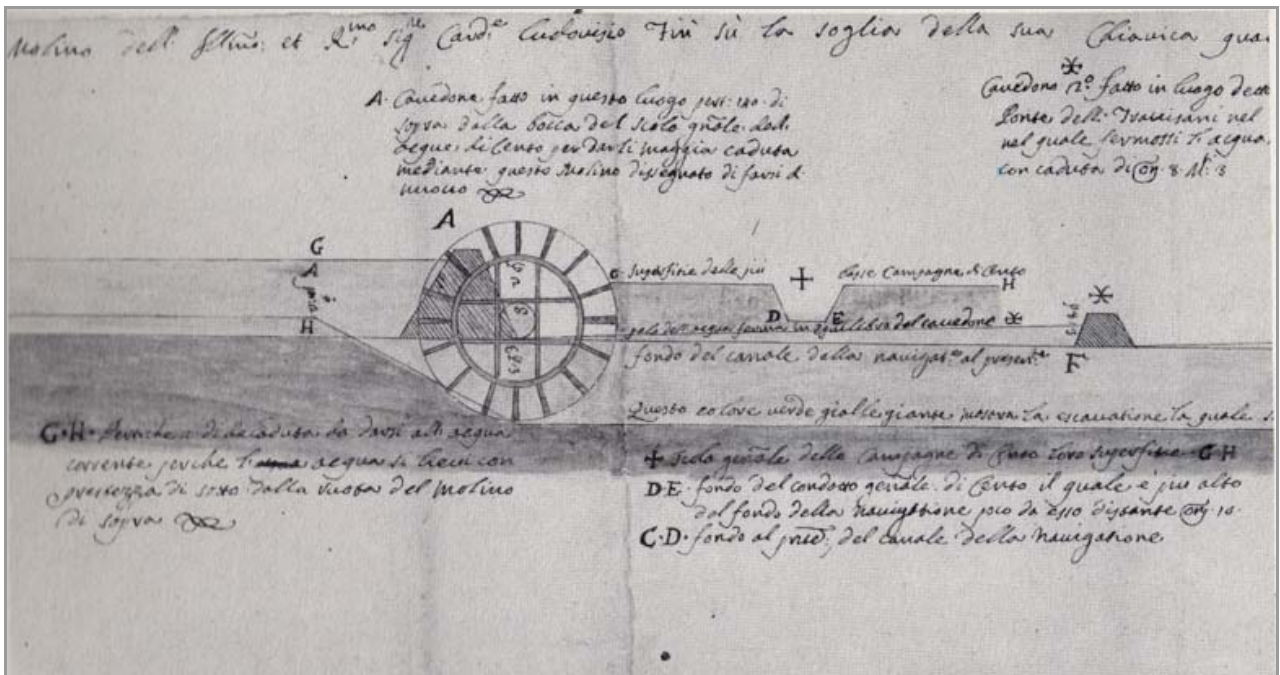 Molino dell' Illmo: et R.mo Sig.re Card.e Ludovisio Fin sù la soglia della sua Chiavica
A. Cavedone fatto in questo luogo pert: 140. di
sopra dalla bocca del scolo gnāle dell'
acque di Cento per darli maggia caduta
mediante questo Molino dissegnato di farsi d
nuovo
Cavedone 12.o fatto in luogo detto
Ponte delli Travisani nel
nel quale fermossi l'acqua
con caduta di on. 8.
A
G
A
H
C. Superfitie delle più
basse Campagne di Cento
H
D
E
pelo dell' acqua ferma in equilibrio del cavedone
fondo del canale della navigat.e al present.e
F
Questo colore verde gialleggiante mostra la escavatione la quale
G. H. di caduta da darsi all' acqua
corrente perche l' acqua si con
prestezza di sotto dalla ruota del molino
di sopra
Scolo genāle delle Campagne di Cento loro superfitie G H
D E. fondo del condotto genāle di Cento il quale è piu alto
dal fondo della navigatione poco da esso distante on. 10.
C. D. fondo al del canale della navigatione